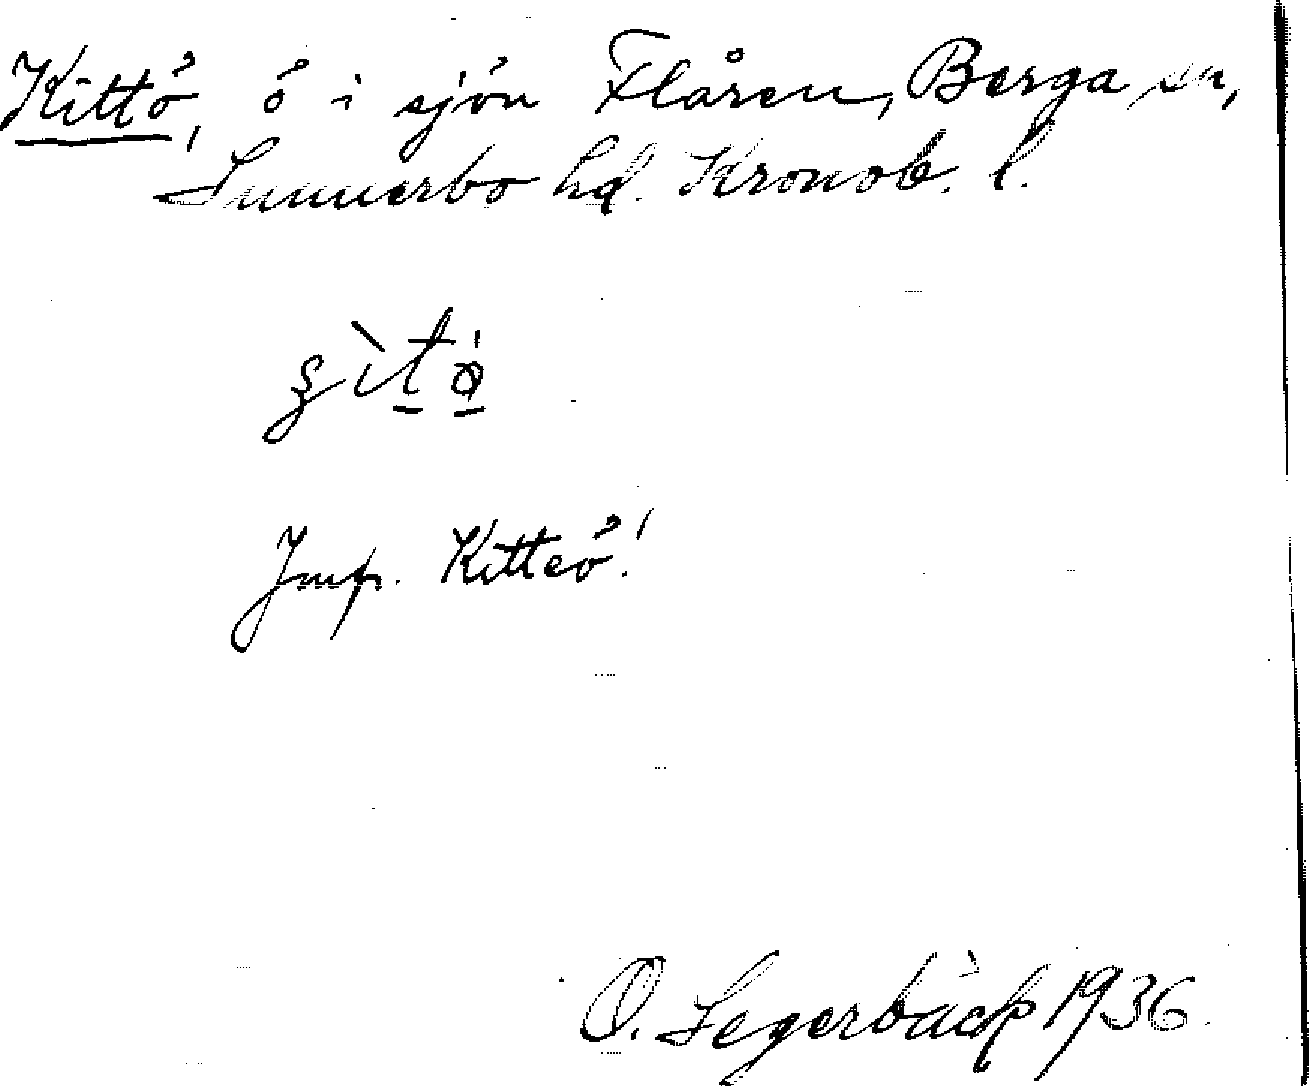 Kittö, ö i sjön Flåren, Berga sn,
Sunnerbo hd. Kronob. l.
Jmf. Kitteö!
O. Segerbäck 1936